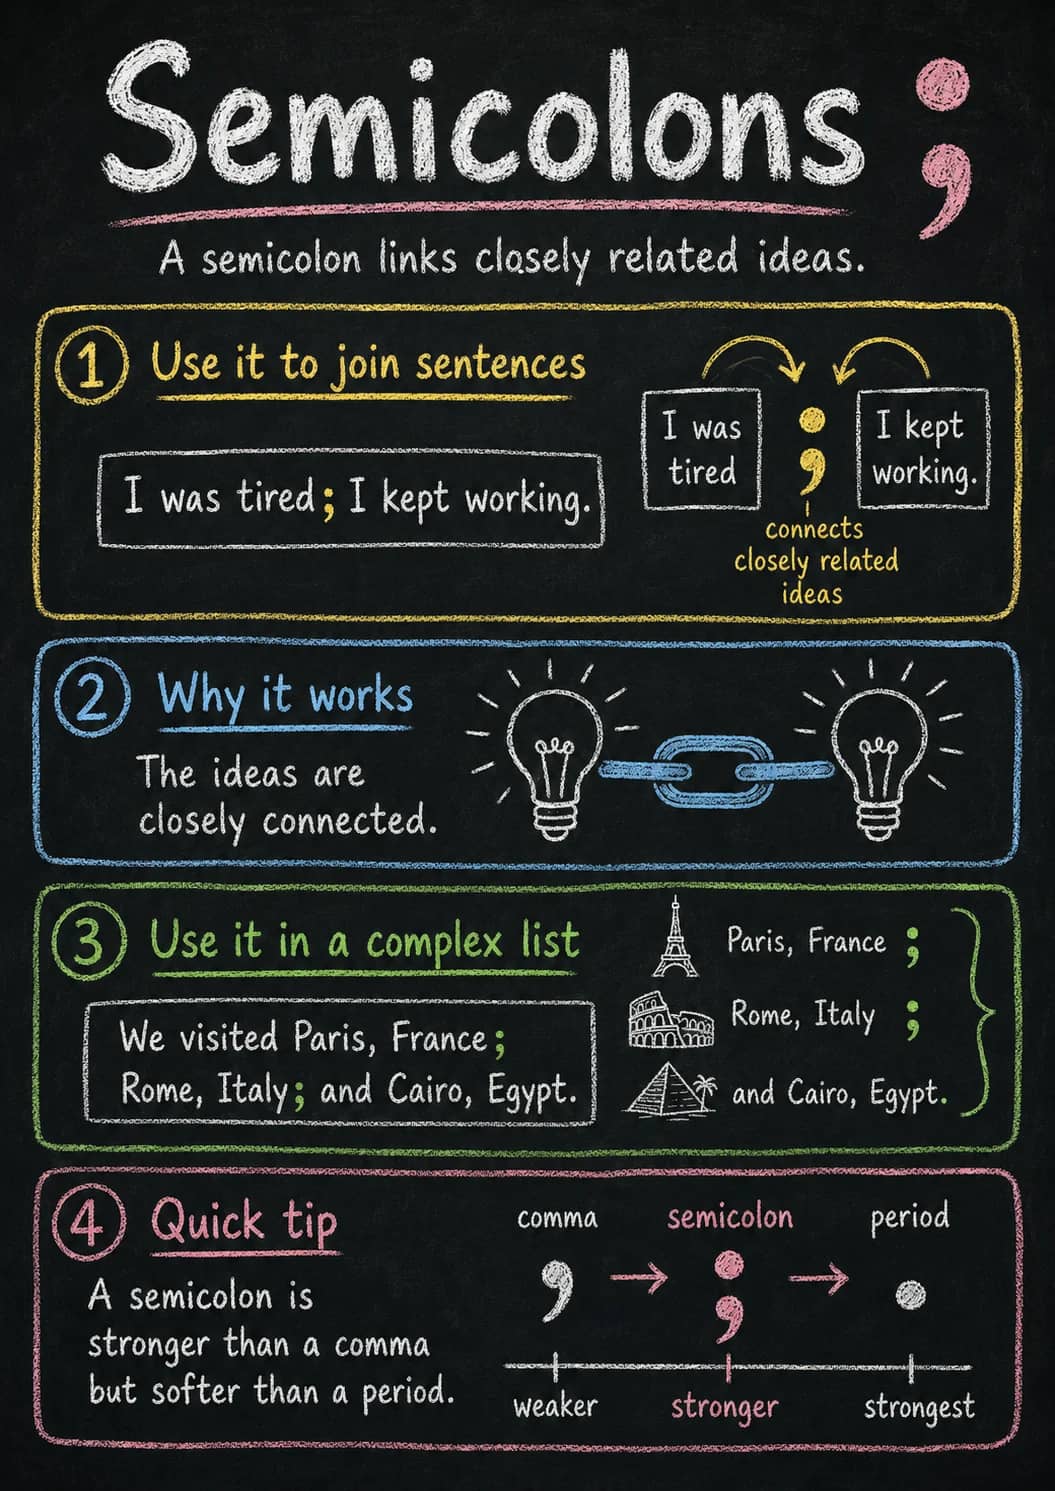 Semicolons ;
A semicolon links closely related ideas.
1 Use it to join sentences
I was tired; I kept working.
I was
tired
;
I kept
working.
connects
closely related
ideas
2 Why it works
The ideas are
closely connected.
3 Use it in a complex list
We visited Paris, France;
Rome, Italy; and Cairo, Egypt.
Paris, France ;
Rome, Italy ;
and Cairo, Egypt.
4 Quick tip
A semicolon is
stronger than a comma
but softer than a period.
comma semicolon period
, ; .
weaker stronger strongest